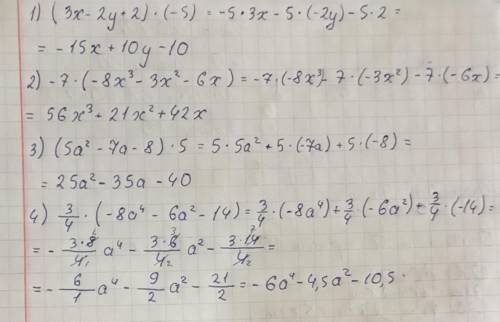 1) (3x - 2y + 2) · (-5) = -5 · 3x - 5 · (-2y) - 5 · 2 =
= -15x + 10y - 10
2) -7 · (-8x³ - 3x² - 6x) = -7 · (-8x³) - 7 · (-3x²) - 7 · (-6x) =
= 56x³ + 21x² + 42x
3) (5a² - 7a - 8) · 5 = 5 · 5a² + 5 · (-7a) + 5 · (-8) =
= 25a² - 35a - 40
4) 3/4 · (-8a⁴ - 6a² - 14) = 3/4 · (-8a⁴) + 3/4 · (-6a²) + 3/4 · (-14) =
= - 3·8/4₁ a⁴ - 3·6³/4₂ a² - 3·14⁷/4₂ =
= - 6/1 a⁴ - 9/2 a² - 21/2 = -6a⁴ - 4,5a² - 10,5.